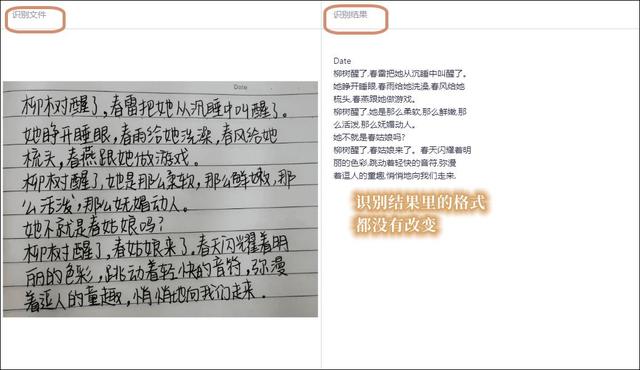 识别文件
Date
柳树醒了，春雷把她从沉睡中叫醒了。
她睁开睡眼，春雨给她洗澡，春风给她
梳头，春燕跟她做游戏。
柳树醒了，她是那么柔软，那么鲜嫩，那
么活泼，那么妩媚动人。
她不就是春姑娘吗？
柳树醒了，春姑娘来了。春天闪耀着明
丽的色彩，跳动着轻快的音符，弥漫
着逗人的童趣，悄悄地向我们走来.
识别结果
Date
柳树醒了,春雷把她从沉睡中叫醒了。
她睁开睡眼,春雨给她洗澡,春风给她
梳头,春燕跟她做游戏。
柳树醒了,她是那么柔软,那么鲜嫩,那
么活泼,那么妩媚动人。
她不就是春姑娘吗?
柳树醒了,春姑娘来了。春天闪耀着明
丽的色彩,跳动着轻快的音符,弥漫
着逗人的童趣,悄悄地向我们走来.
识别结果里的格式
都没有改变